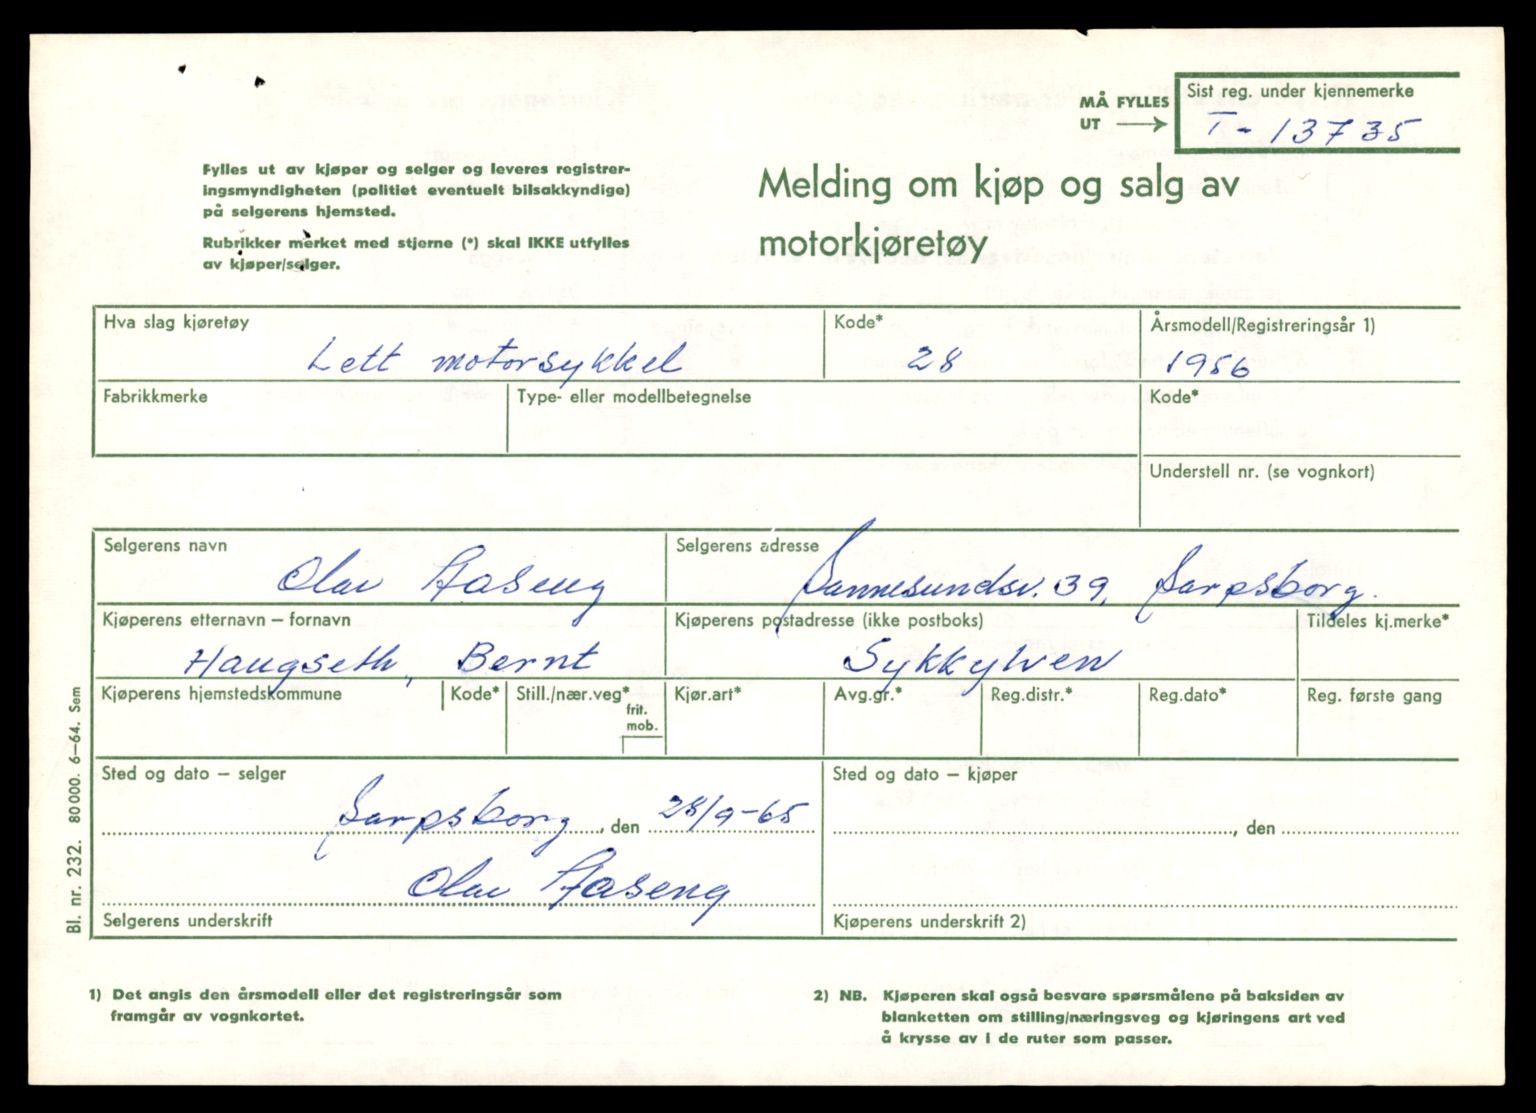 MÅ FYLLES
UT
Sist reg. under kjennemerke
T-13735
Fylles ut av kjøper og selger og leveres registrer-
ingsmyndigheten (politiet eventuelt bilsakkyndige)
på selgerens hjemsted.
Rubrikker merket med stjerne (*) skal IKKE utfylles
av kjøper/selger.
Melding om kjøp og salg av
motorkjøretøy
Hva slag kjøretøy
Lett motorsykkel
Kode*
28
Årsmodell/Registreringsår 1)
1956
Fabrikkmerke
Type- eller modellbetegnelse
Kode*
Understell nr. (se vognkort)
Selgerens navn
Olav Aaseng
Selgerens adresse
Sannesundsv. 39, Sarpsborg.
Kjøperens etternavn – fornavn
Haugseth, Bernt
Kjøperens postadresse (ikke postboks)
Sykkylven
Tildeles kj.merke*
Kjøperens hjemstedskommune
Kode*
Still./nær.veg*
frit.
mob.
Kjør.art*
Avg.gr.*
Reg.distr.*
Reg.dato*
Reg. første gang
Sted og dato – selger
Sarpsborg, den 28/9-65
Olav Aaseng
Selgerens underskrift
Sted og dato – kjøper
, den
Kjøperens underskrift 2)
Bl. nr. 232. 80000. 6–64. Sem
1) Det angis den årsmodell eller det registreringsår som
framgår av vognkortet.
2) NB. Kjøperen skal også besvare spørsmålene på baksiden av
blanketten om stilling/næringsveg og kjøringens art ved
å krysse av i de ruter som passer.